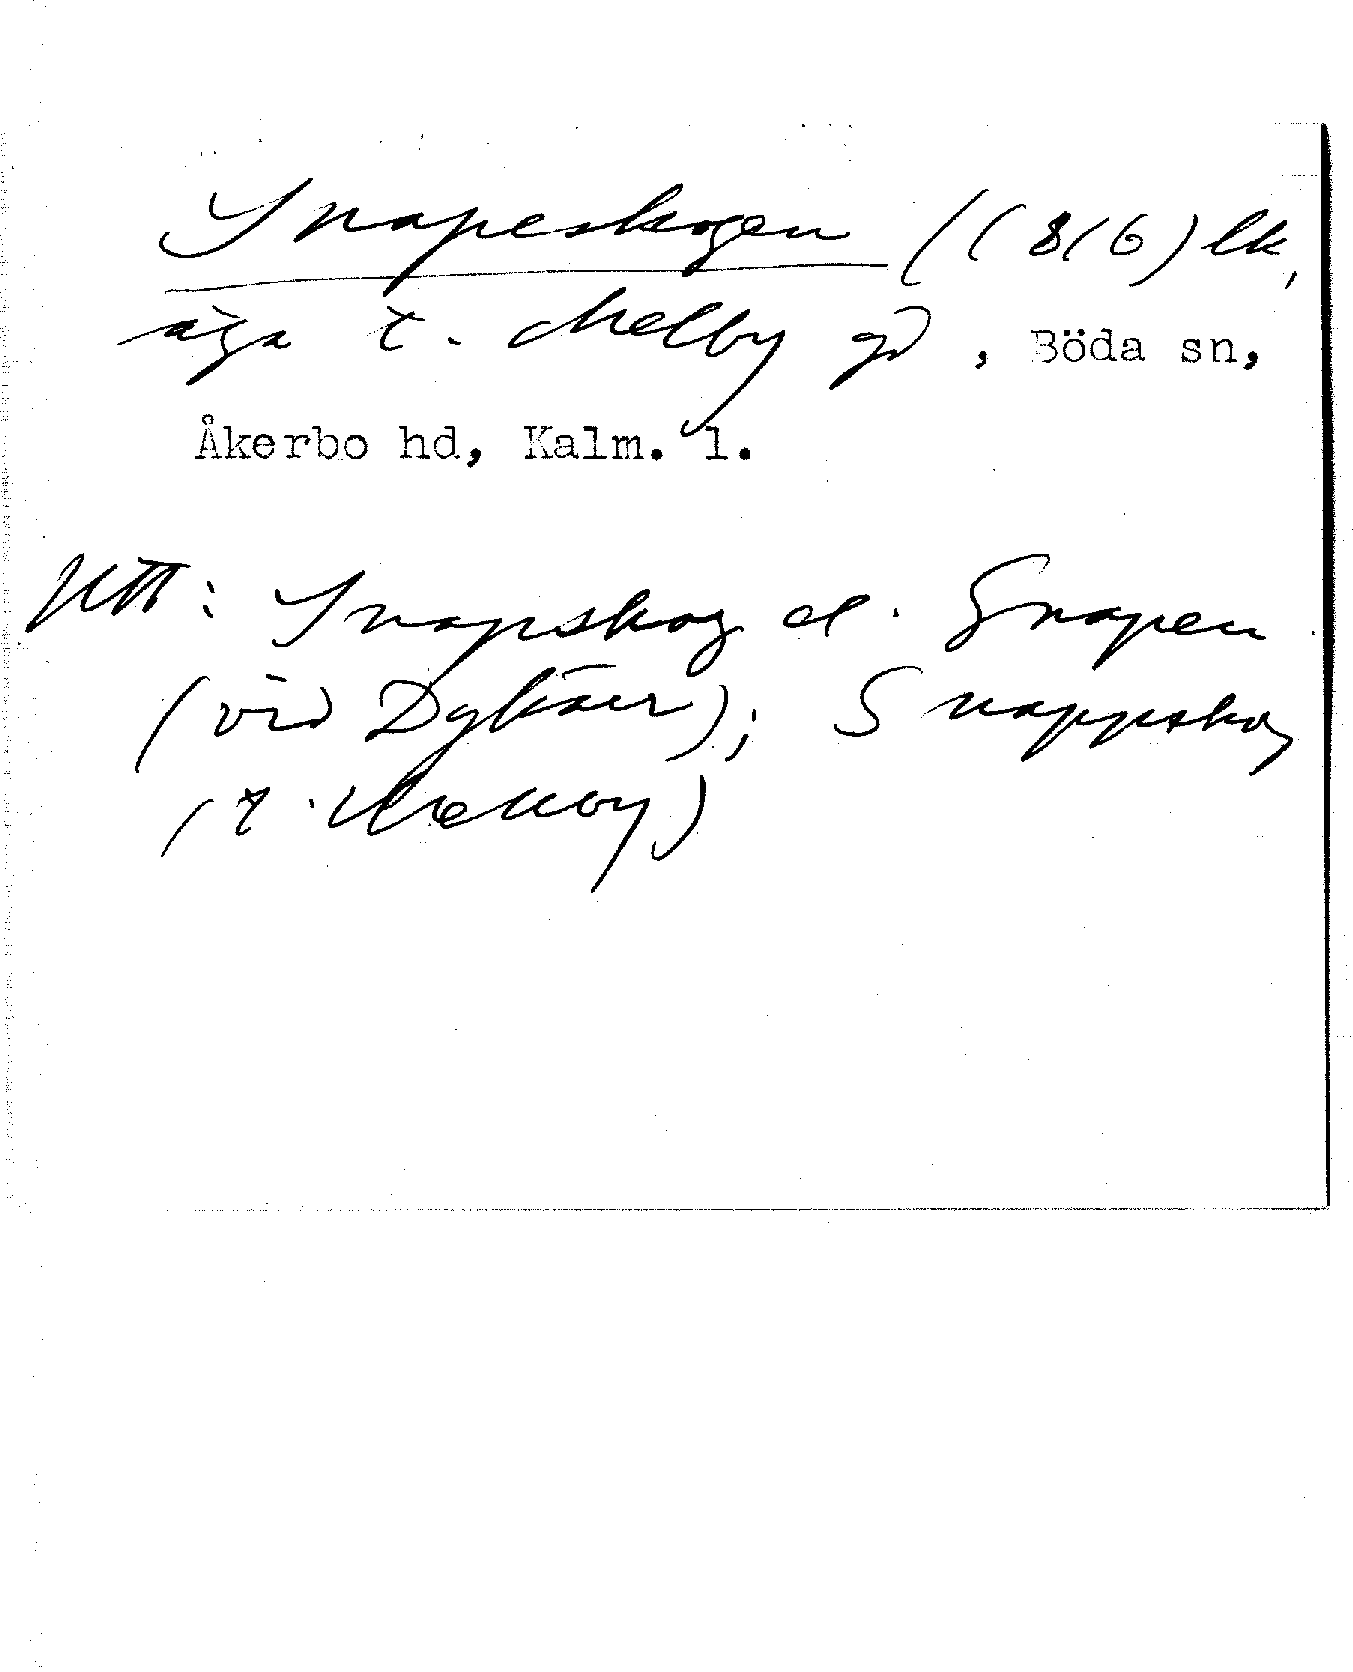 Snapeskogen (1816) lk,
äga t. Melby gd, Böda sn,
Åkerbo hd, Kalm. l.
Utt: Snapskog el. Snapen
(vid Dykärr); Snappskog
(t. Mellby)